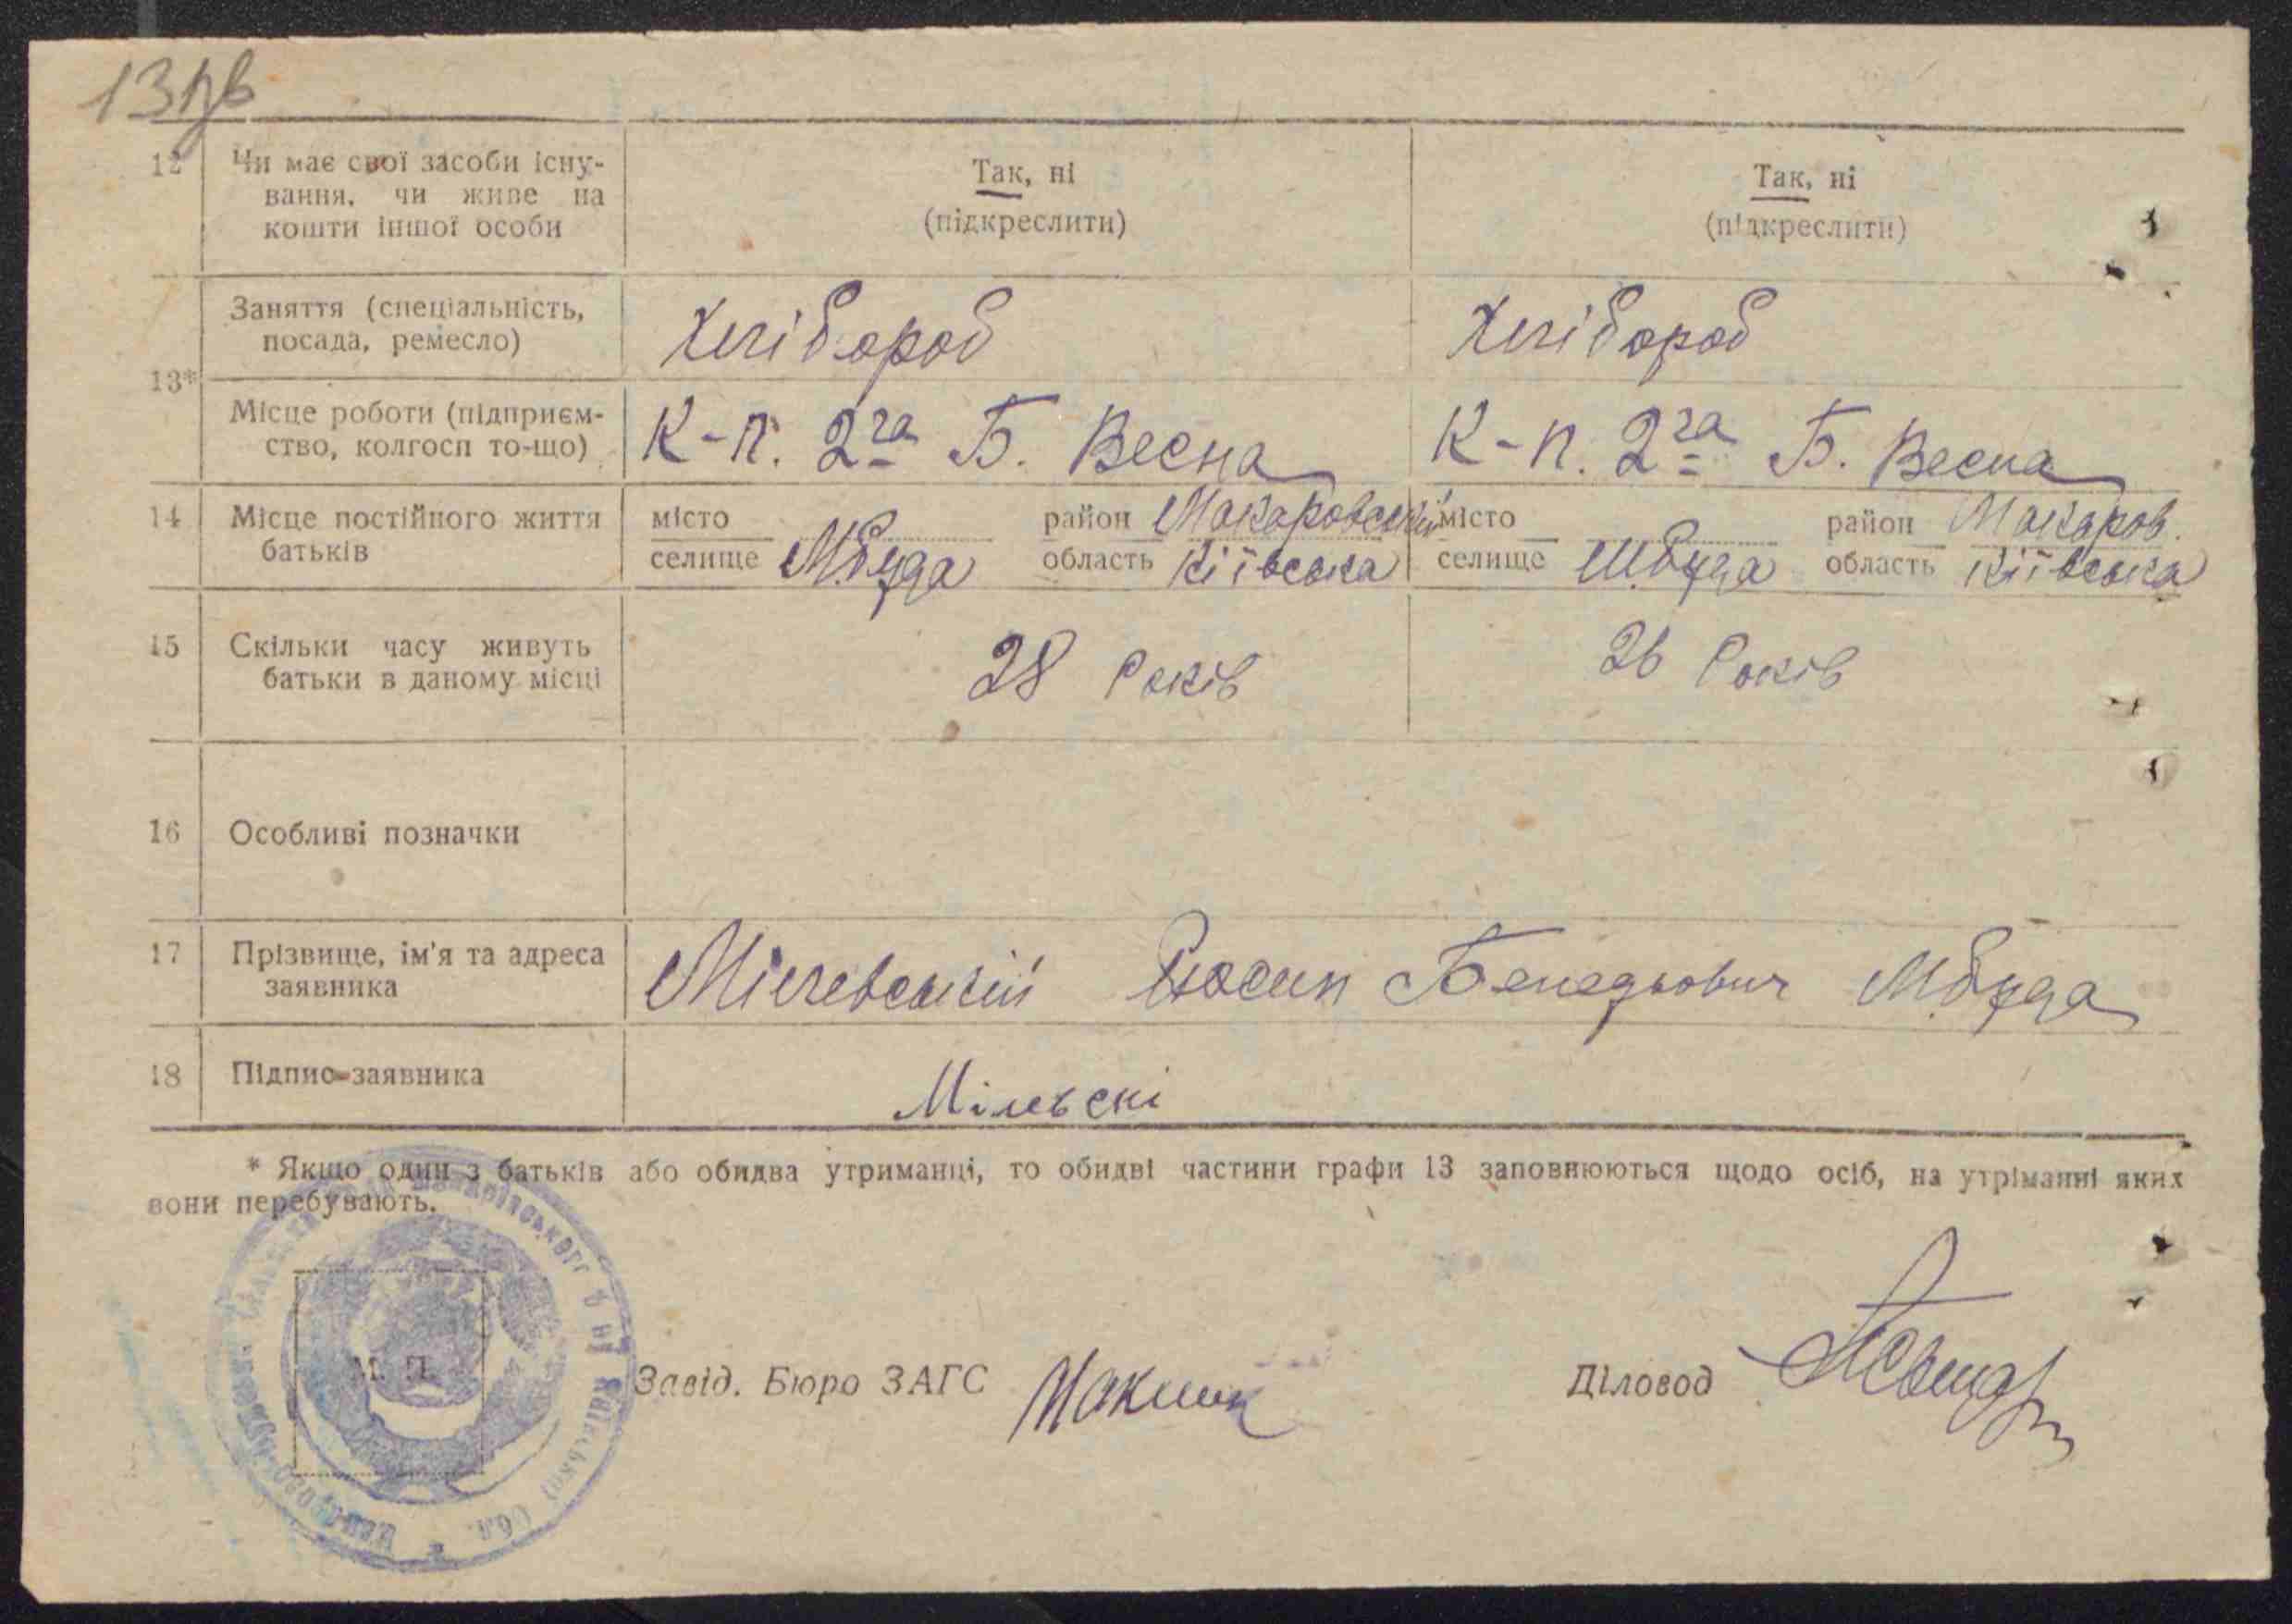 13зв
12 Чи має свої засоби існу-
вання, чи живе на
кошти іншої особи
Так, ні
(підкреслити)
Так, ні
(підкреслити)
13*
Заняття (спеціальність,
посада, ремесло)
Хлібороб
Хлібороб
Місце роботи (підприєм-
ство, колгосп то-що)
К-п. 2га Б. Весна
К-п. 2га Б. Весна
14 Місце постійного життя
батьків
місто
селище М.Буда
район Макаровський
область Київська
місто
селище М.Буда
район Макаров.
область Київська
15 Скільки часу живуть
батьки в даному місці
28 Років
26 Років
16 Особливі позначки
17 Прізвище, ім'я та адреса
заявника
Мілевський Йосип М.Буда
18 Підпис заявника
Мілевскі
* Якщо один з батьків або обидва утриманці, то обидві частини графи 13 заповнюються щодо осіб, на утріманні яких
вони перебувають.
М. П.
Завід. Бюро ЗАГС
Діловод